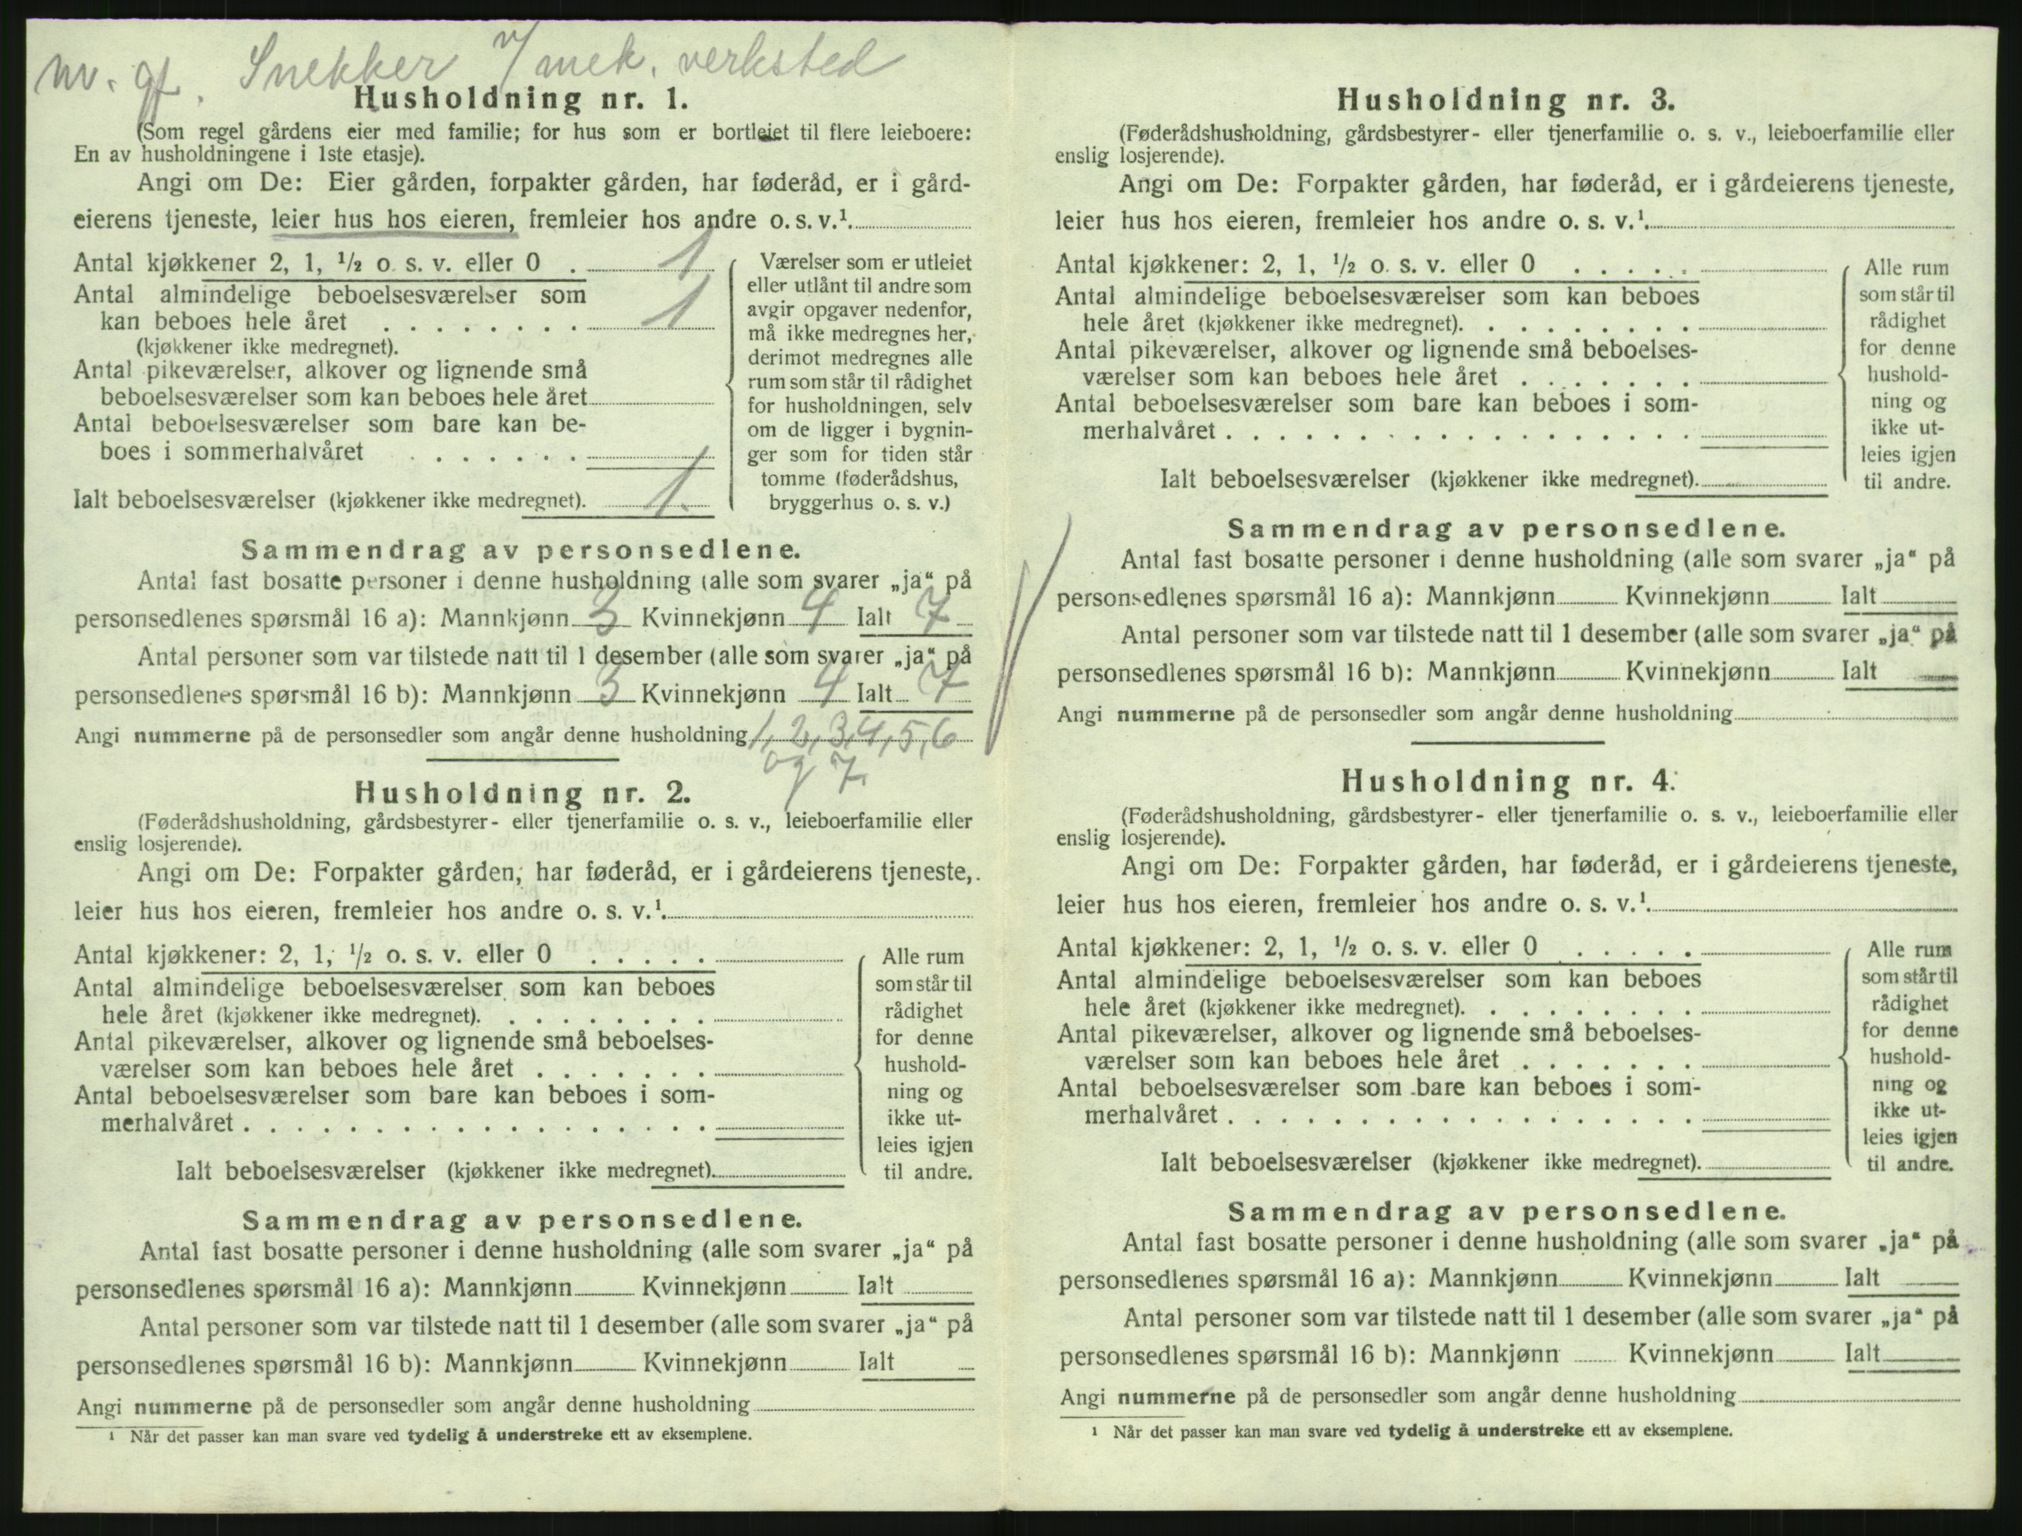 nv. gf. Snekker v/ mek. verksted
Husholdning nr. 1.
(Som regel gårdens eier med familie; for hus som er bortleiet til flere leieboere:
En av husholdningene i 1ste etasje).
Angi om De: Eier gården, forpakter gården, har føderåd, er i gård-
eierens tjeneste, leier hus hos eieren, fremleier hos andre o. s. v.¹
Antal kjøkkener 2, 1, ½ o. s. v. eller 0 . 1
Antal almindelige beboelsesværelser som
kan beboes hele året . . . . . . . . 1
(kjøkkener ikke medregnet).
Antal pikeværelser, alkover og lignende små
beboelsesværelser som kan beboes hele året
Antal beboelsesværelser som bare kan be-
boes i sommerhalvåret . . . . . .
Ialt beboelsesværelser (kjøkkener ikke medregnet). 1.
Værelser som er utleiet
eller utlånt til andre som
avgir opgaver nedenfor,
må ikke medregnes her,
derimot medregnes alle
rum som står til rådighet
for husholdningen, selv
om de ligger i bygnin-
ger som for tiden står
tomme (føderådshus,
bryggerhus o. s. v.)
Sammendrag av personsedlene.
Antal fast bosatte personer i denne husholdning (alle som svarer „ja“ på
personsedlenes spørsmål 16 a): Mannkjønn 3 Kvinnekjønn 4 Ialt 7
Antal personer som var tilstede natt til 1 desember (alle som svarer „ja“ på
personsedlenes spørsmål 16 b): Mannkjønn 3 Kvinnekjønn 4 Ialt 7
Angi nummerne på de personsedler som angår denne husholdning 1, 2, 3, 4, 5, 6
og 7.
Husholdning nr. 2.
(Føderådshusholdning, gårdsbestyrer- eller tjenerfamilie o. s. v., leieboerfamilie eller
enslig losjerende).
Angi om De: Forpakter gården, har føderåd, er i gårdeierens tjeneste,
leier hus hos eieren, fremleier hos andre o. s. v.¹
Antal kjøkkener: 2, 1, ½ o. s. v. eller 0 . . . . .
Antal almindelige beboelsesværelser som kan beboes
hele året (kjøkkener ikke medregnet). . . . . . . . .
Antal pikeværelser, alkover og lignende små beboelses-
værelser som kan beboes hele året . . . . . . .
Antal beboelsesværelser som bare kan beboes i som-
merhalvåret . . . . . . . . . . . . . . . . . .
Ialt beboelsesværelser (kjøkkener ikke medregnet).
Alle rum
som står til
rådighet
for denne
hushold-
ning og
ikke ut-
leies igjen
til andre.
Sammendrag av personsedlene.
Antal fast bosatte personer i denne husholdning (alle som svarer „ja“ på
personsedlenes spørsmål 16 a): Mannkjønn Kvinnekjønn Ialt
Antal personer som var tilstede natt til 1 desember (alle som svarer „ja“ på
personsedlenes spørsmål 16 b): Mannkjønn Kvinnekjønn Ialt
Angi nummerne på de personsedler som angår denne husholdning
¹ Når det passer kan man svare ved tydelig å understreke ett av eksemplene.
Husholdning nr. 3.
(Føderådshusholdning, gårdsbestyrer- eller tjenerfamilie o. s. v., leieboerfamilie eller
enslig losjerende).
Angi om De: Forpakter gården, har føderåd, er i gårdeierens tjeneste,
leier hus hos eieren, fremleier hos andre o. s. v.¹
Antal kjøkkener: 2, 1, ½ o. s. v. eller 0 . . . . .
Antal almindelige beboelsesværelser som kan beboes
hele året (kjøkkener ikke medregnet). . . . . . . . .
Antal pikeværelser, alkover og lignende små beboelses-
værelser som kan beboes hele året . . . . . . .
Antal beboelsesværelser som bare kan beboes i som-
merhalvåret . . . . . . . . . . . . . . . . . .
Ialt beboelsesværelser (kjøkkener ikke medregnet).
Alle rum
som står til
rådighet
for denne
hushold-
ning og
ikke ut-
leies igjen
til andre.
Sammendrag av personsedlene.
Antal fast bosatte personer i denne husholdning (alle som svarer „ja“ på
personsedlenes spørsmål 16 a): Mannkjønn Kvinnekjønn Ialt
Antal personer som var tilstede natt til 1 desember (alle som svarer „ja“ på
personsedlenes spørsmål 16 b): Mannkjønn Kvinnekjønn Ialt
Angi nummerne på de personsedler som angår denne husholdning
Husholdning nr. 4.
(Føderådshusholdning, gårdsbestyrer- eller tjenerfamilie o. s. v., leieboerfamilie eller
enslig losjerende).
Angi om De: Forpakter gården, har føderåd, er i gårdeierens tjeneste,
leier hus hos eieren, fremleier hos andre o. s. v.¹
Antal kjøkkener: 2, 1, ½ o. s. v. eller 0 . . . . .
Antal almindelige beboelsesværelser som kan beboes
hele året (kjøkkener ikke medregnet). . . . . . . . .
Antal pikeværelser, alkover og lignende små beboelses-
værelser som kan beboes hele året . . . . . . .
Antal beboelsesværelser som bare kan beboes i som-
merhalvåret . . . . . . . . . . . . . . . . . .
Ialt beboelsesværelser (kjøkkener ikke medregnet).
Alle rum
som står til
rådighet
for denne
hushold-
ning og
ikke ut-
leies igjen
til andre.
Sammendrag av personsedlene.
Antal fast bosatte personer i denne husholdning (alle som svarer „ja“ på
personsedlenes spørsmål 16 a): Mannkjønn Kvinnekjønn Ialt
Antal personer som var tilstede natt til 1 desember (alle som svarer „ja“ på
personsedlenes spørsmål 16 b): Mannkjønn Kvinnekjønn Ialt
Angi nummerne på de personsedler som angår denne husholdning
¹ Når det passer kan man svare ved tydelig å understreke ett av eksemplene.